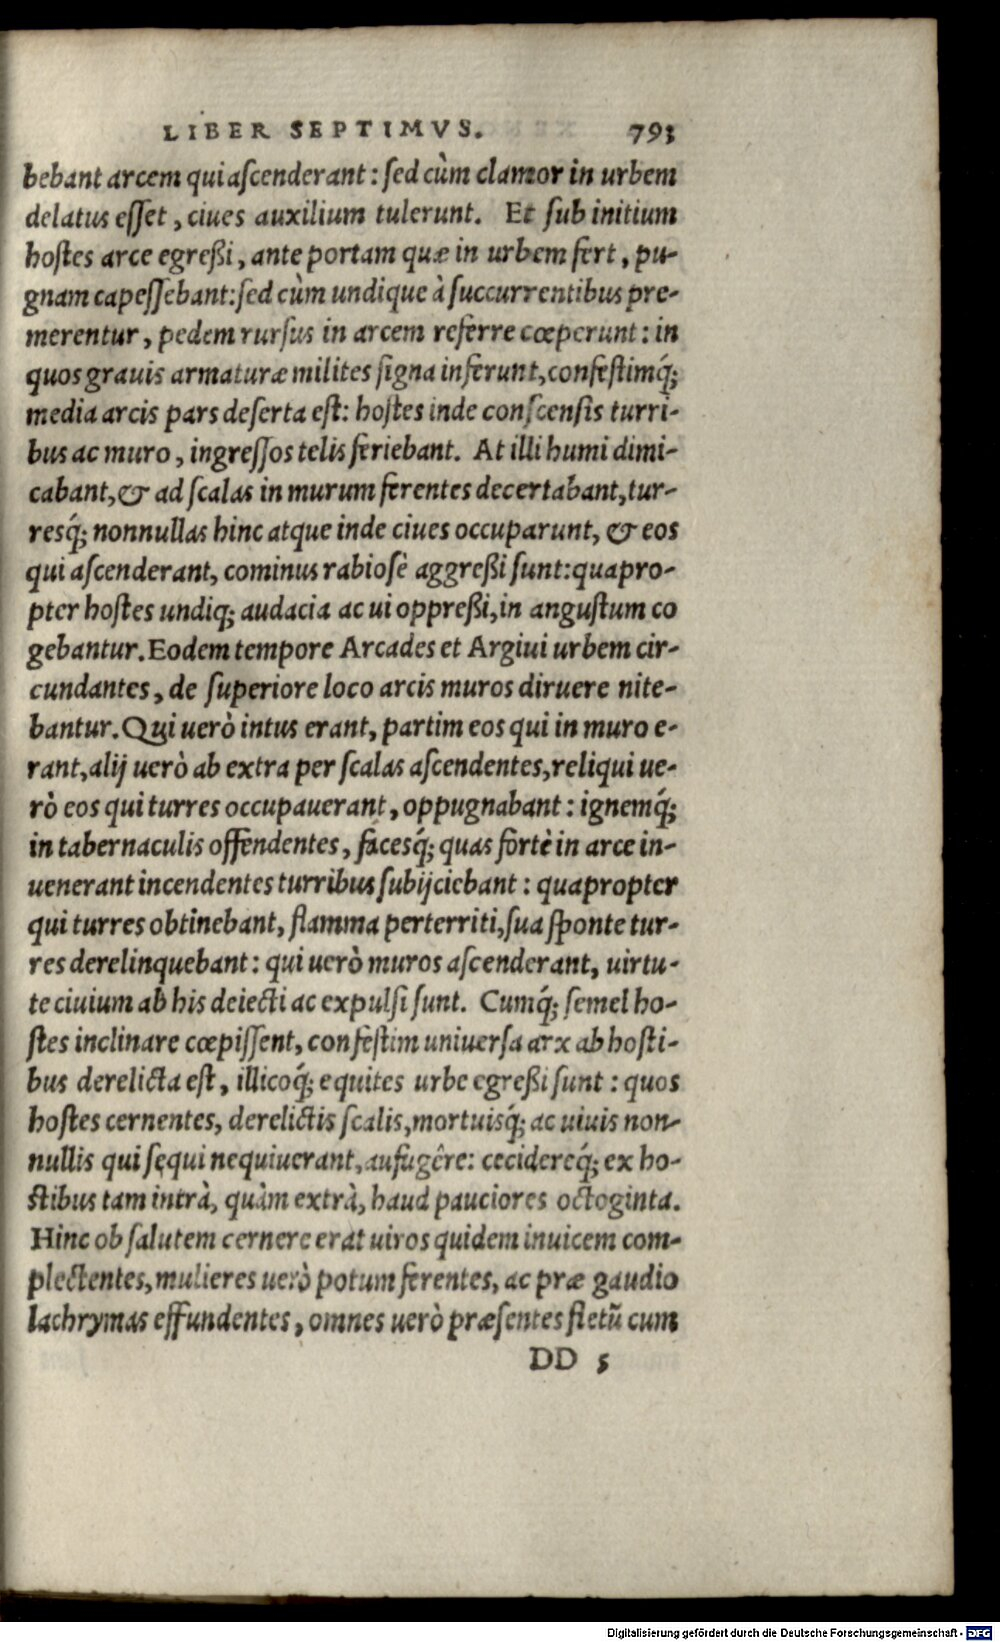 LIBER SEPTIMVS. 793
bebant arcem qui ascenderant : sed cùm clamor in urbem
delatus esset , ciues auxilium tulerunt. Et sub initium
hostes arce egreßi , ante portam quæ in urbem fert , pu-
gnam capessebant : sed cùm undique à succurrentibus pre-
merentur , pedem rursus in arcem referre cœperunt : in
quos grauis armaturæ milites signa inferunt, confestimq́;
media arcis pars deserta est: hostes inde conscensis turri-
bus ac muro , ingressos telis feriebant. At illi humi dimi-
cabant, & ad scalas in murum ferentes decertabant, tur-
resq́; nonnullas hinc atque inde ciues occuparunt, & eos
qui ascenderant, cominus rabiosè aggreßi sunt: quapro-
pter hostes undiq; audacia ac ui oppreßi, in angustum co
gebantur. Eodem tempore Arcades et Argiui urbem cir-
cundantes , de superiore loco arcis muros diruere nite-
bantur. Qui uerò intus erant, partim eos qui in muro e-
rant, alij uerò ab extra per scalas ascendentes, reliqui ue-
rò eos qui turres occupauerant , oppugnabant : ignemq́;
in tabernaculis offendentes , facesq́; quas fortè in arce in-
uenerant incendentes turribus subijciebant : quapropter
qui turres obtinebant, flamma perterriti, sua sponte tur-
res derelinquebant : qui uerò muros ascenderant, uirtu-
te ciuium ab his deiecti ac expulsi sunt. Cumq́; semel ho-
stes inclinare cœpissent, confestim uniuersa arx ab hosti-
bus derelicta est , illicoq́; equites urbe egreßi sunt : quos
hostes cernentes, derelictis scalis, mortuisq́; ac uiuis non-
nullis qui sequi nequiuerant, aufugêre: cecidereq́; ex ho-
stibus tam intrà, quàm extrà, haud pauciores octoginta.
Hinc ob salutem cernere erat uiros quidem inuicem com-
plectentes, mulieres uerò potum ferentes, ac præ gaudio
lachrymas effundentes , omnes uerò præsentes fletū cum
DD 5
Digitalisierung gefördert durch die Deutsche Forschungsgemeinschaft - DFG